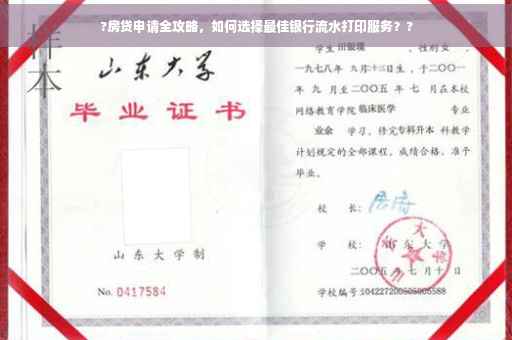 ?房贷申请全攻略，如何选择最佳银行流水打印服务？?
样本
山东大学
毕业证书
山东大学制
No. 0417584
学生 田银環 ，性别 女 ，
一九七八年 九月十三日生，于二〇〇一
年 九 月至二〇〇五 年 七 月在本校
网络教育学院 临床医学 专业
业余 学习，修完专科升本 科教学
计划规定的全部课程，成绩合格，准予
毕业。
校 长：
学 校：山东大学
二〇〇五年 七 月 十 日
学校编号:104227200505005588